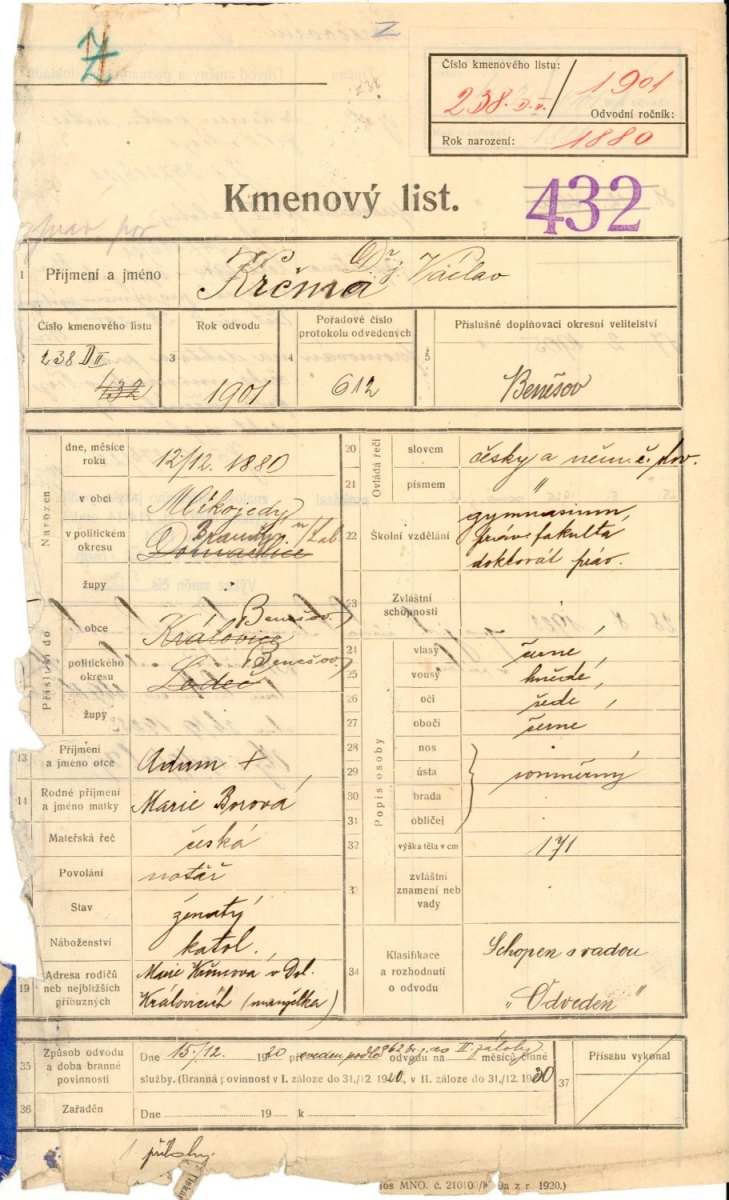 Z
Číslo kmenového listu:
238. D.II. / 1901
Odvodní ročník:
Rok narození: 1880
Kmenový list.
432
1 Příjmení a jméno
Krčma Dr. j. Václav
Číslo kmenového listu
238 D II
432
3 Rok odvodu
1901
4 Pořadové číslo protokolu odvedených
612
5 Příslušné doplňovací okresní velitelství
Benešov
Narozen
dne, měsíce roku 12/12. 1880
v obci Mlikojedy
v politickém okresu Brandýs n/Lab.
župy
Přísluší do
obce Královice Benešov
politického okresu Ledeč Benešov
župy
13 Příjmení a jméno otce Adam +
14 Rodné příjmení a jméno matky Marie Borová
Mateřská řeč česká
Povolání notář
Stav ženatý
Náboženství katol.
19 Adresa rodičů neb nejbližších příbuzných Marie Krčmová v Dol.
Královicích (manželka)
Ovládá řeči
20 slovem česky a něm.
21 písmem "
22 Školní vzdělání gymnasium,
práv. fakulta
doktorát práv.
23 Zvláštní schopnosti
Popis osoby
24 vlasy černé,
25 vousy hnědé,
26 oči šedé,
27 obočí černé
28 nos
29 ústa souměrný
30 brada
31 obličej
32 výška těla v cm 171
3 zvláštní znamení neb vady
34 Klasifikace a rozhodnutí o odvodu Schopen s vadou
„Odveden"
35 Způsob odvodu a doba branné povinnosti
Dne 15./12. 1920 převeden podle odvodu na II. zálohy měsíců činné
služby. (Branná povinnost v I. záloze do 31./12 1920, v II. záloze do 31./12. 1930
37 Přísahu vykonal
36 Zařaděn Dne 19 k
1 přílohy.
MNO. č. 210100/ z r. 1920.)